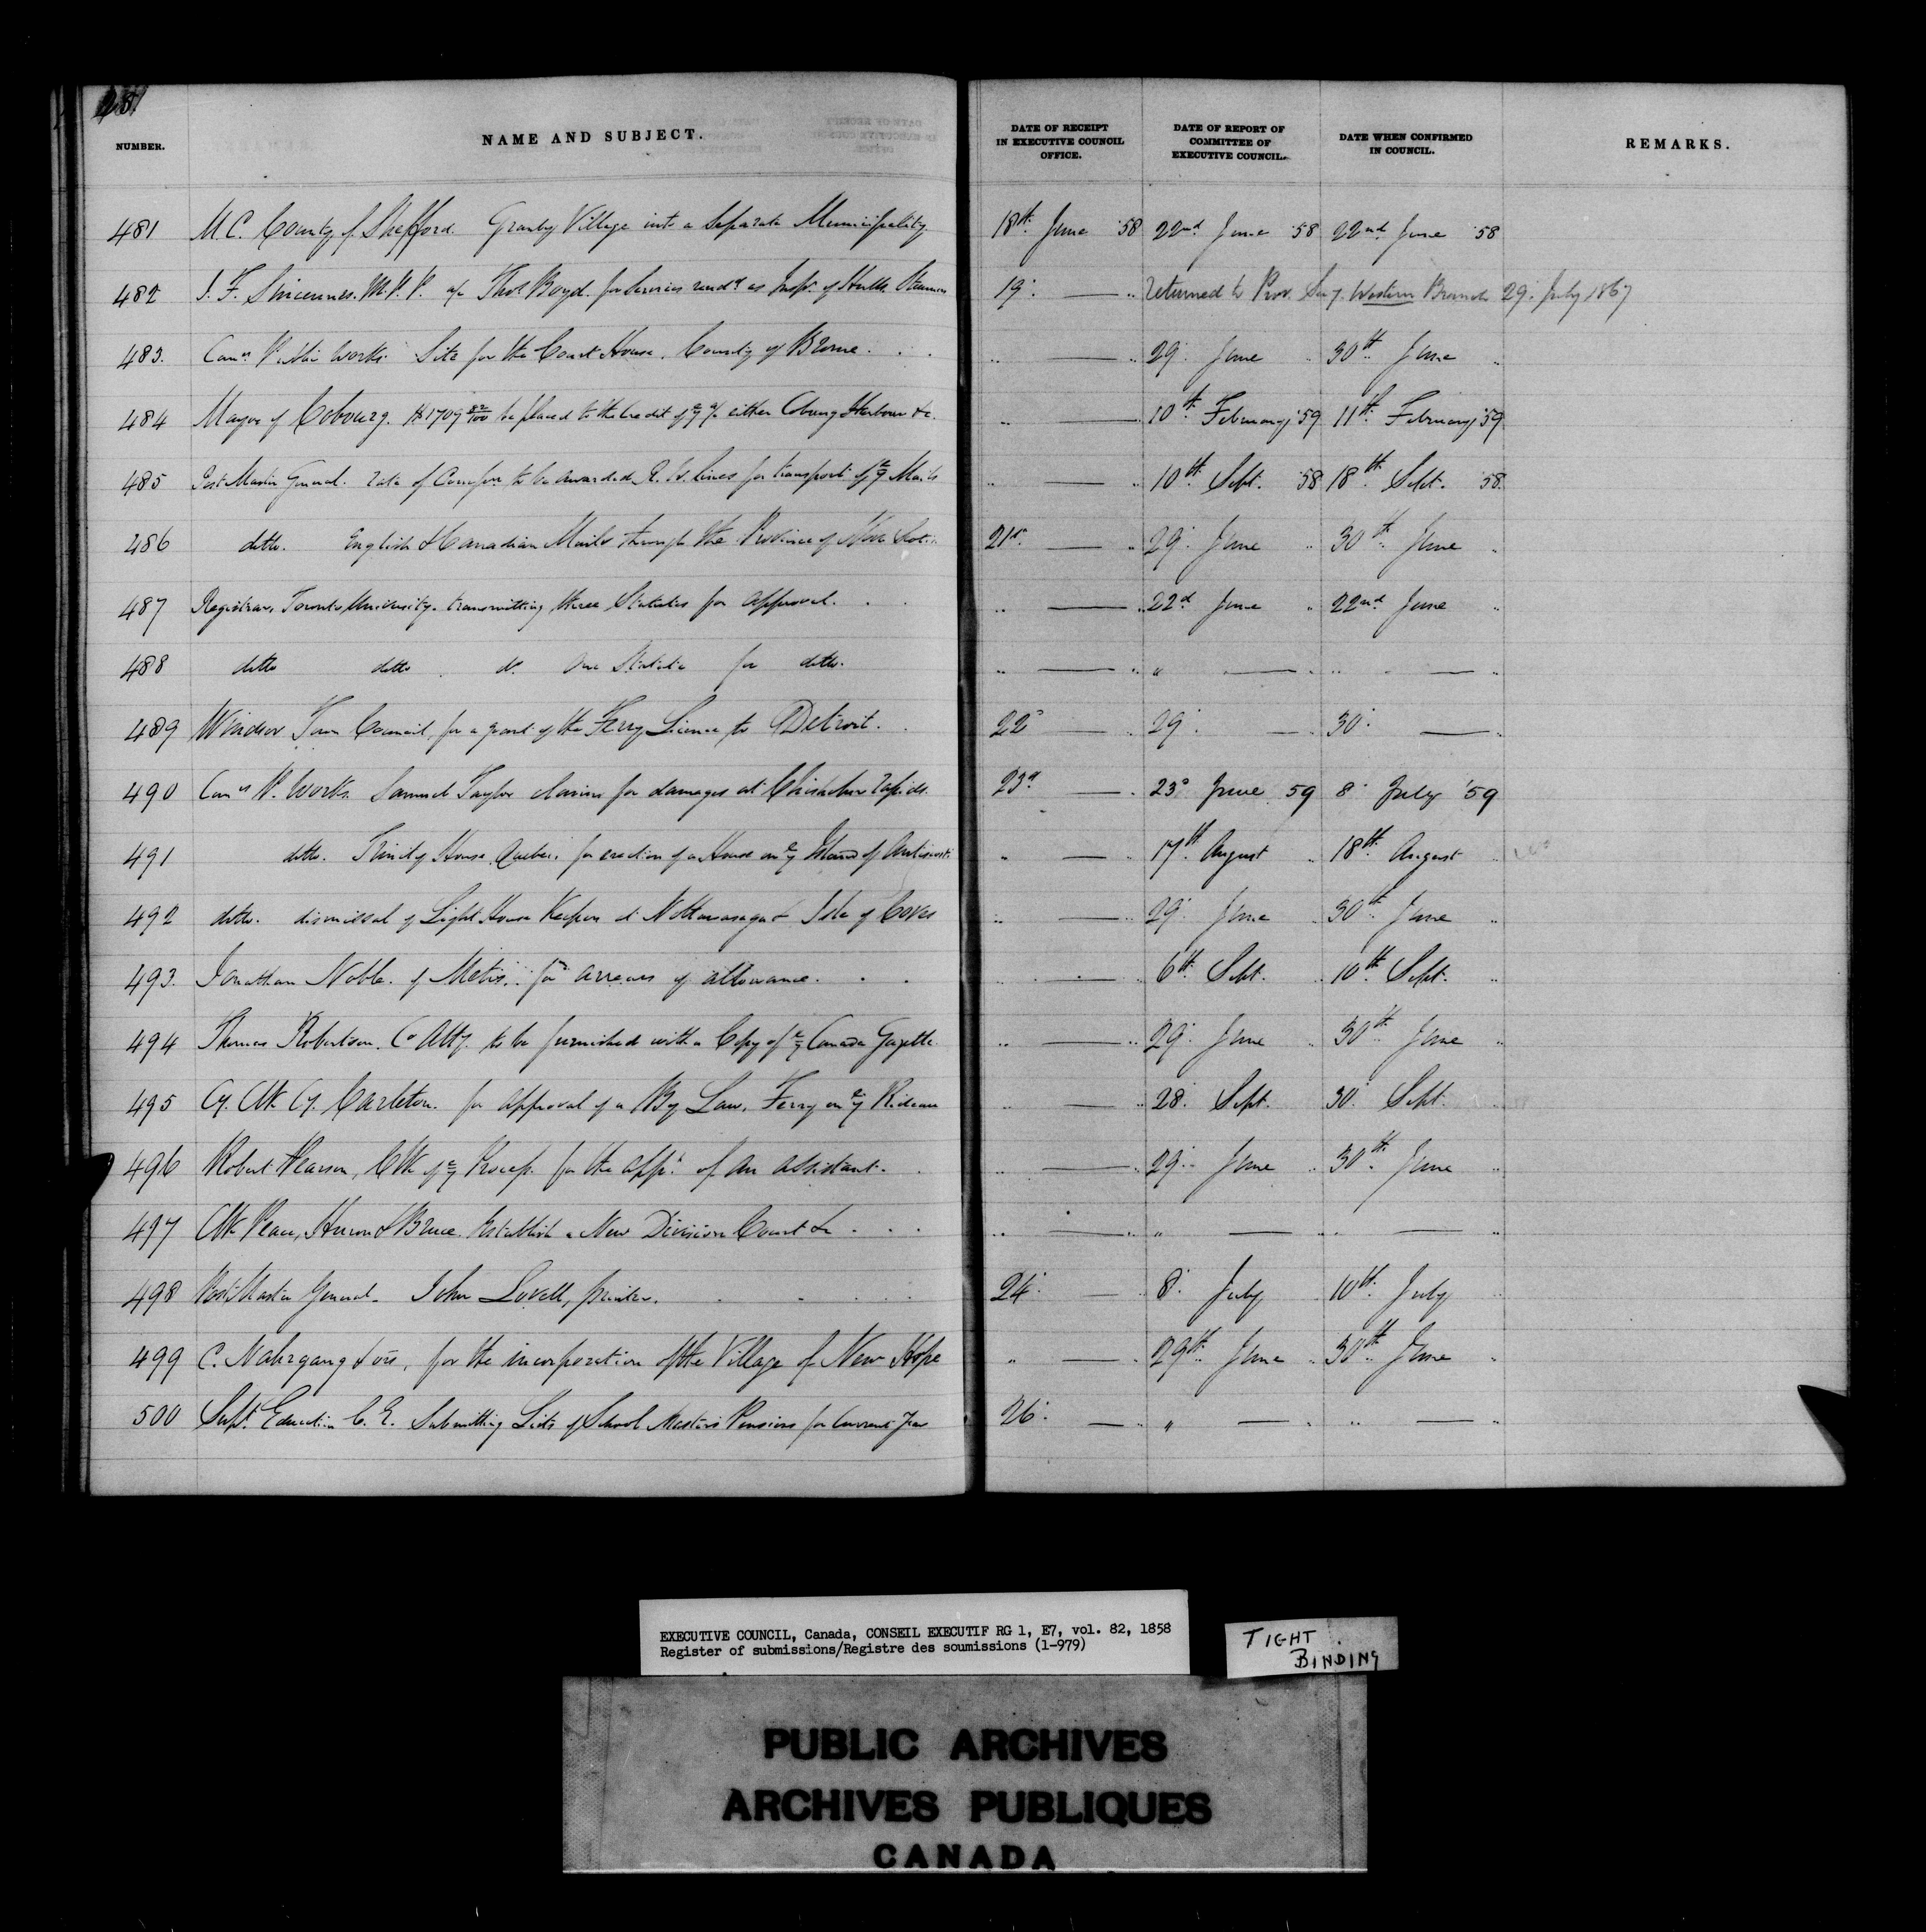 NUMBER. NAME AND SUBJECT. DATE OF RECEIPT IN EXECUTIVE COUNCIL OFFICE. DATE OF REPORT OF COMMITTEE OF EXECUTIVE COUNCIL. DATE WHEN CONFIRMED IN COUNCIL. REMARKS.
481 M.C. County of Shefford. Granby Village into a Separate Municipality 18th June '58 22nd June '58 22nd June '58
482 M.P.P. Thos Boyd. for Services rendd as Inspr of Hulls Steamers 19. — " returned to Prov. Secy. Western Branch 29. July 1867
483. Comrs Public Works. Site for the Court House. County of Brome. . . " — " 29. June " 30th June "
484 Mayor of Cobourg. $1709 82/100 be placed to the Credit of ye a/c either Cobourg Harbour &c. " — 10th February '59 11th February '59
485 Post Master General. rate of to be awarded R. W. Lines for transport of ye Mails " — " 10th Sept. '58 18th Sept. '58.
486 ditto. English & Canadian Mails through the Province of Nova Scotia 21st — " 29. June " 30th June "
487 Registrar, Toronto University. transmitting three Statutes for approval. . . " — " 22d June " 22nd June "
488 ditto ditto do. One Statute for ditto. " — " " — " " — "
489 Windsor Town Council, for a grant of the Ferry License to Detroit. . 22d — " 29. — " 30. — "
490 Comrs P. Works. Samuel Taylor claims for damages at Rapids. 23d — " 23d June 59 8. July '59
491 ditto. Trinity House, Quebec. for erection of a House on ye Island of Anticosti " — " 17th August " 18th August "
492 ditto. dismissal of Light House Keepers at Nottawasaga & Isle of Coves " — " 29. June " 30th June "
493. Jonathan Noble. of Metis. for arrears of allowance. . . " — " 6th Sept. " 10th Sept. "
494 Thomas Robertson. Co Atty. to be furnished with a Copy of ye Canada Gazette. " — " 29. June " 30th June "
495 Cy. Clk Cy. Carleton. for approval of a By Law, Ferry on ye Rideau " — " 28. Sept. 30. Sept.
496 Robert Pearson, Clk of ye Process. for the appt. of an assistant. . " — " 29. June " 30th June "
497 Clk Peace, Huron & Bruce. Establish a New Division Court &c . . . " — " " — " — "
498 Post Master General. John Lovell, printer. . . . . 24. — " 8. July 10th July "
499 C. Nahrgang & ors, for the incorporation of the Village of New Hope " — " 29th June " 30th June "
500 Supt. Education C. E. Submitting Lists of School Masters Pensions for Current Year 26. — " " — " " — "
EXECUTIVE COUNCIL, Canada, CONSEIL EXECUTIF RG 1, E7, vol. 82, 1858
Register of submissions/Registre des soumissions (1-979)
TIGHT
BINDING
PUBLIC ARCHIVES
ARCHIVES PUBLIQUES
CANADA